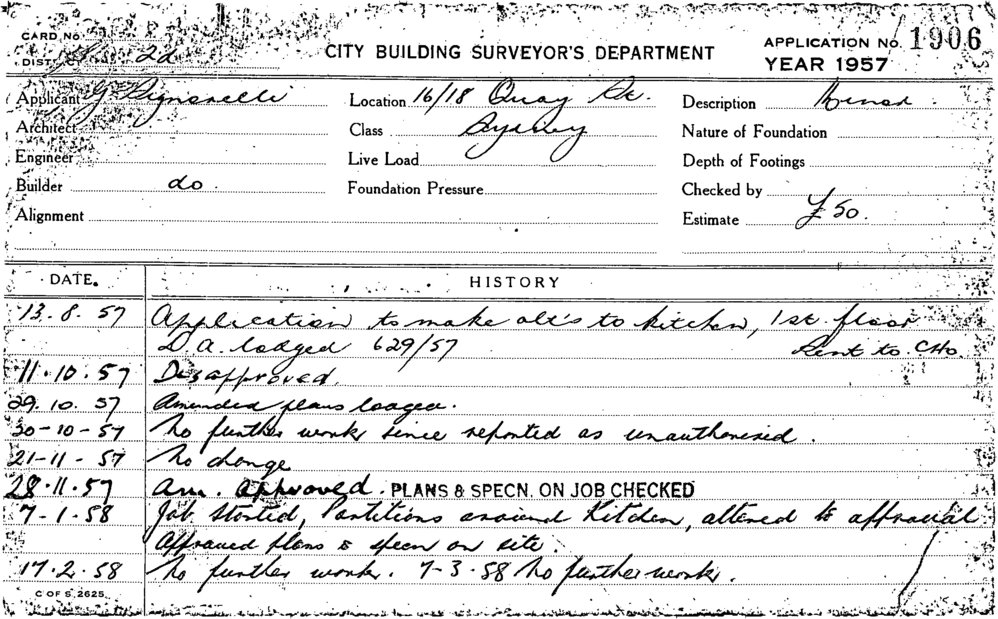 CARD No.
DIST. 2d
CITY BUILDING SURVEYOR'S DEPARTMENT
APPLICATION No. 1906
YEAR 1957
Applicant G.
Location 16/18 Quay St.
Description
Architect
Class Sydney
Nature of Foundation
Engineer
Live Load
Depth of Footings
Builder do.
Foundation Pressure
Checked by
Alignment
Estimate £50.
DATE.
HISTORY
13.8.57 Application to make alt's to kitchen, 1st. floor
D.A. lodged 629/57 Sent to CHO.
11.10.57 Disapproved.
29.10.57 Amended plans lodged.
30-10-57 No further work since reported as unauthorised.
21-11-57 No change
28.11.57 Am. Approved. PLANS & SPECN. ON JOB CHECKED
7-1.58 Job Started, Partitions around Kitchen, altered to approval
Approved plans & specn on site.
17.2.58 No further work. 7-3.58 No further work.
C OF S. 2625